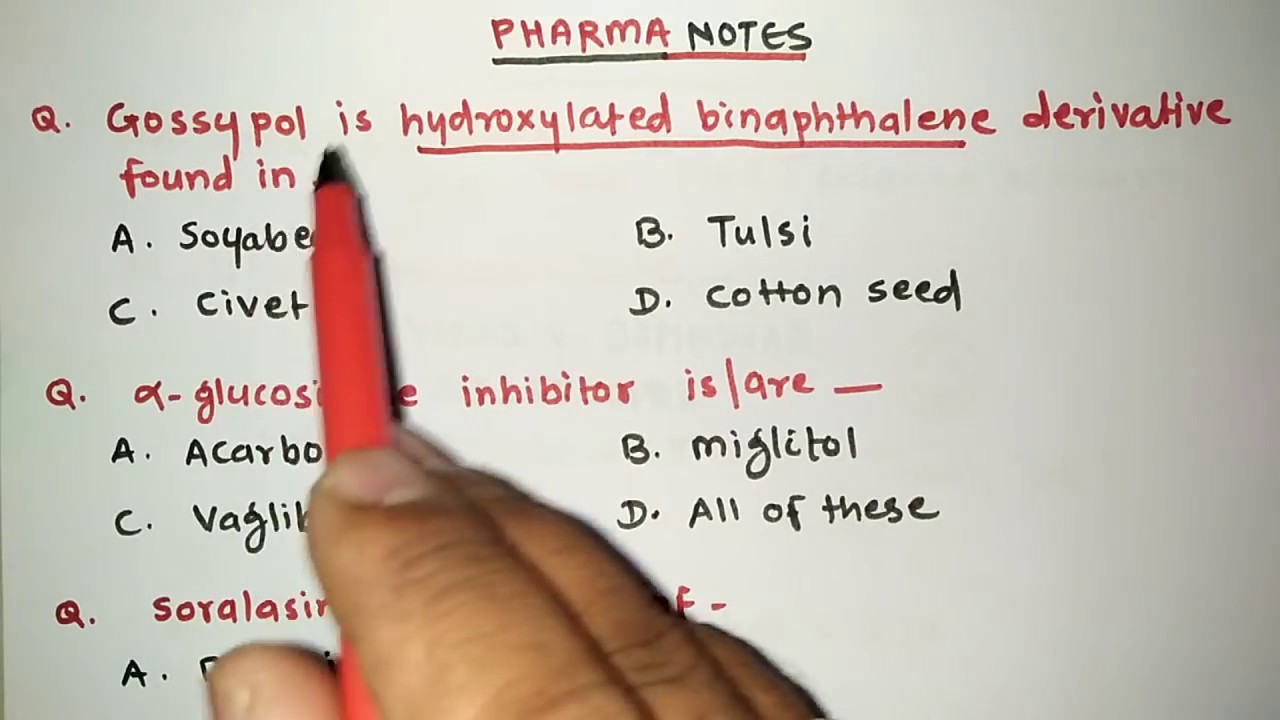 PHARMA NOTES
Q. Gossypol is hydroxylated binaphthalene derivative
found in
A. Soyabe
B. Tulsi
C. Civet
D. Cotton seed
Q. α-glucosi e inhibitor is/are —
A. Acarbo
B. miglitol
C. Vaglib
D. All of these
Q. Soralasin F -
A.